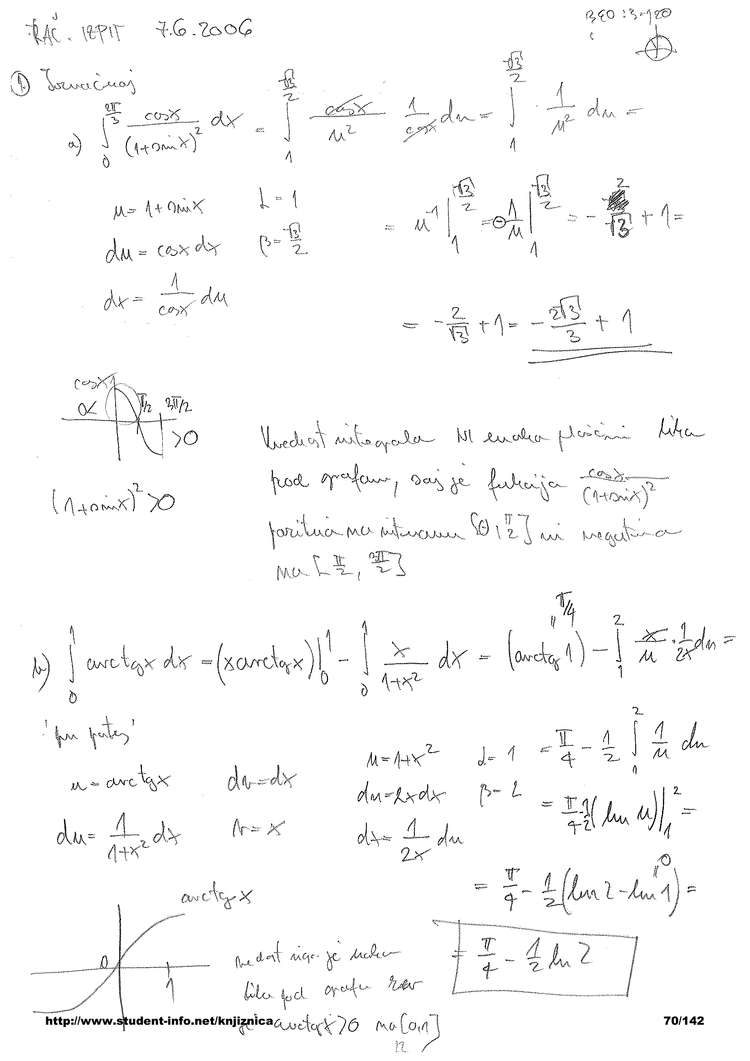 RAČ. IZPIT 7.6.2006
1. Izračunaj
a) ∫_0^{2π/3} cosx/(1+sinx)² dx = ∫_1^{√3/2} cosx/u² · 1/cosx du = ∫_1^{√3/2} · 1/u² du =
u = 1+sinx α = 1
du = cosx dx β = √3/2
dx = 1/cosx du
= u⁻¹ |_1^{√3/2} = -1/u |_1^{√3/2} = -2/√3 + 1 =
= -2/√3 + 1 = -2√3/3 + 1
cosx π/2 3π/2
>0
(1+sinx)² > 0
Vrednost integrala NI enaka ploščini lika
pod grafom, saj je funkcija cosx/(1+sinx)²
pozitivna na intervalu [0, π/2] in negativna
na [π/2, 2π/3]
b) ∫_0^1 arctgx dx = (x arctgx)|_0^1 - ∫_0^1 x/(1+x²) dx = (arctg 1) - ∫_1^2 x/u · 1/2x du =
π/4
'per partes'
u = arctgx dv = dx u = 1+x² α = 1 = π/4 - 1/2 ∫_1^2 1/u du
du = 1/(1+x²) dx v = x du = 2x dx β = 2 = π/4 - 1/2 (ln u)|_1^2 =
dx = 1/2x du
= π/4 - 1/2 (ln2 - ln1) =
0
arctgx
= π/4 - 1/2 ln 2
0 1
je enaka
lika pod grafom
je arctgx > 0 na [0,1]
http://www.student-info.net/knjiznica
70/142
12